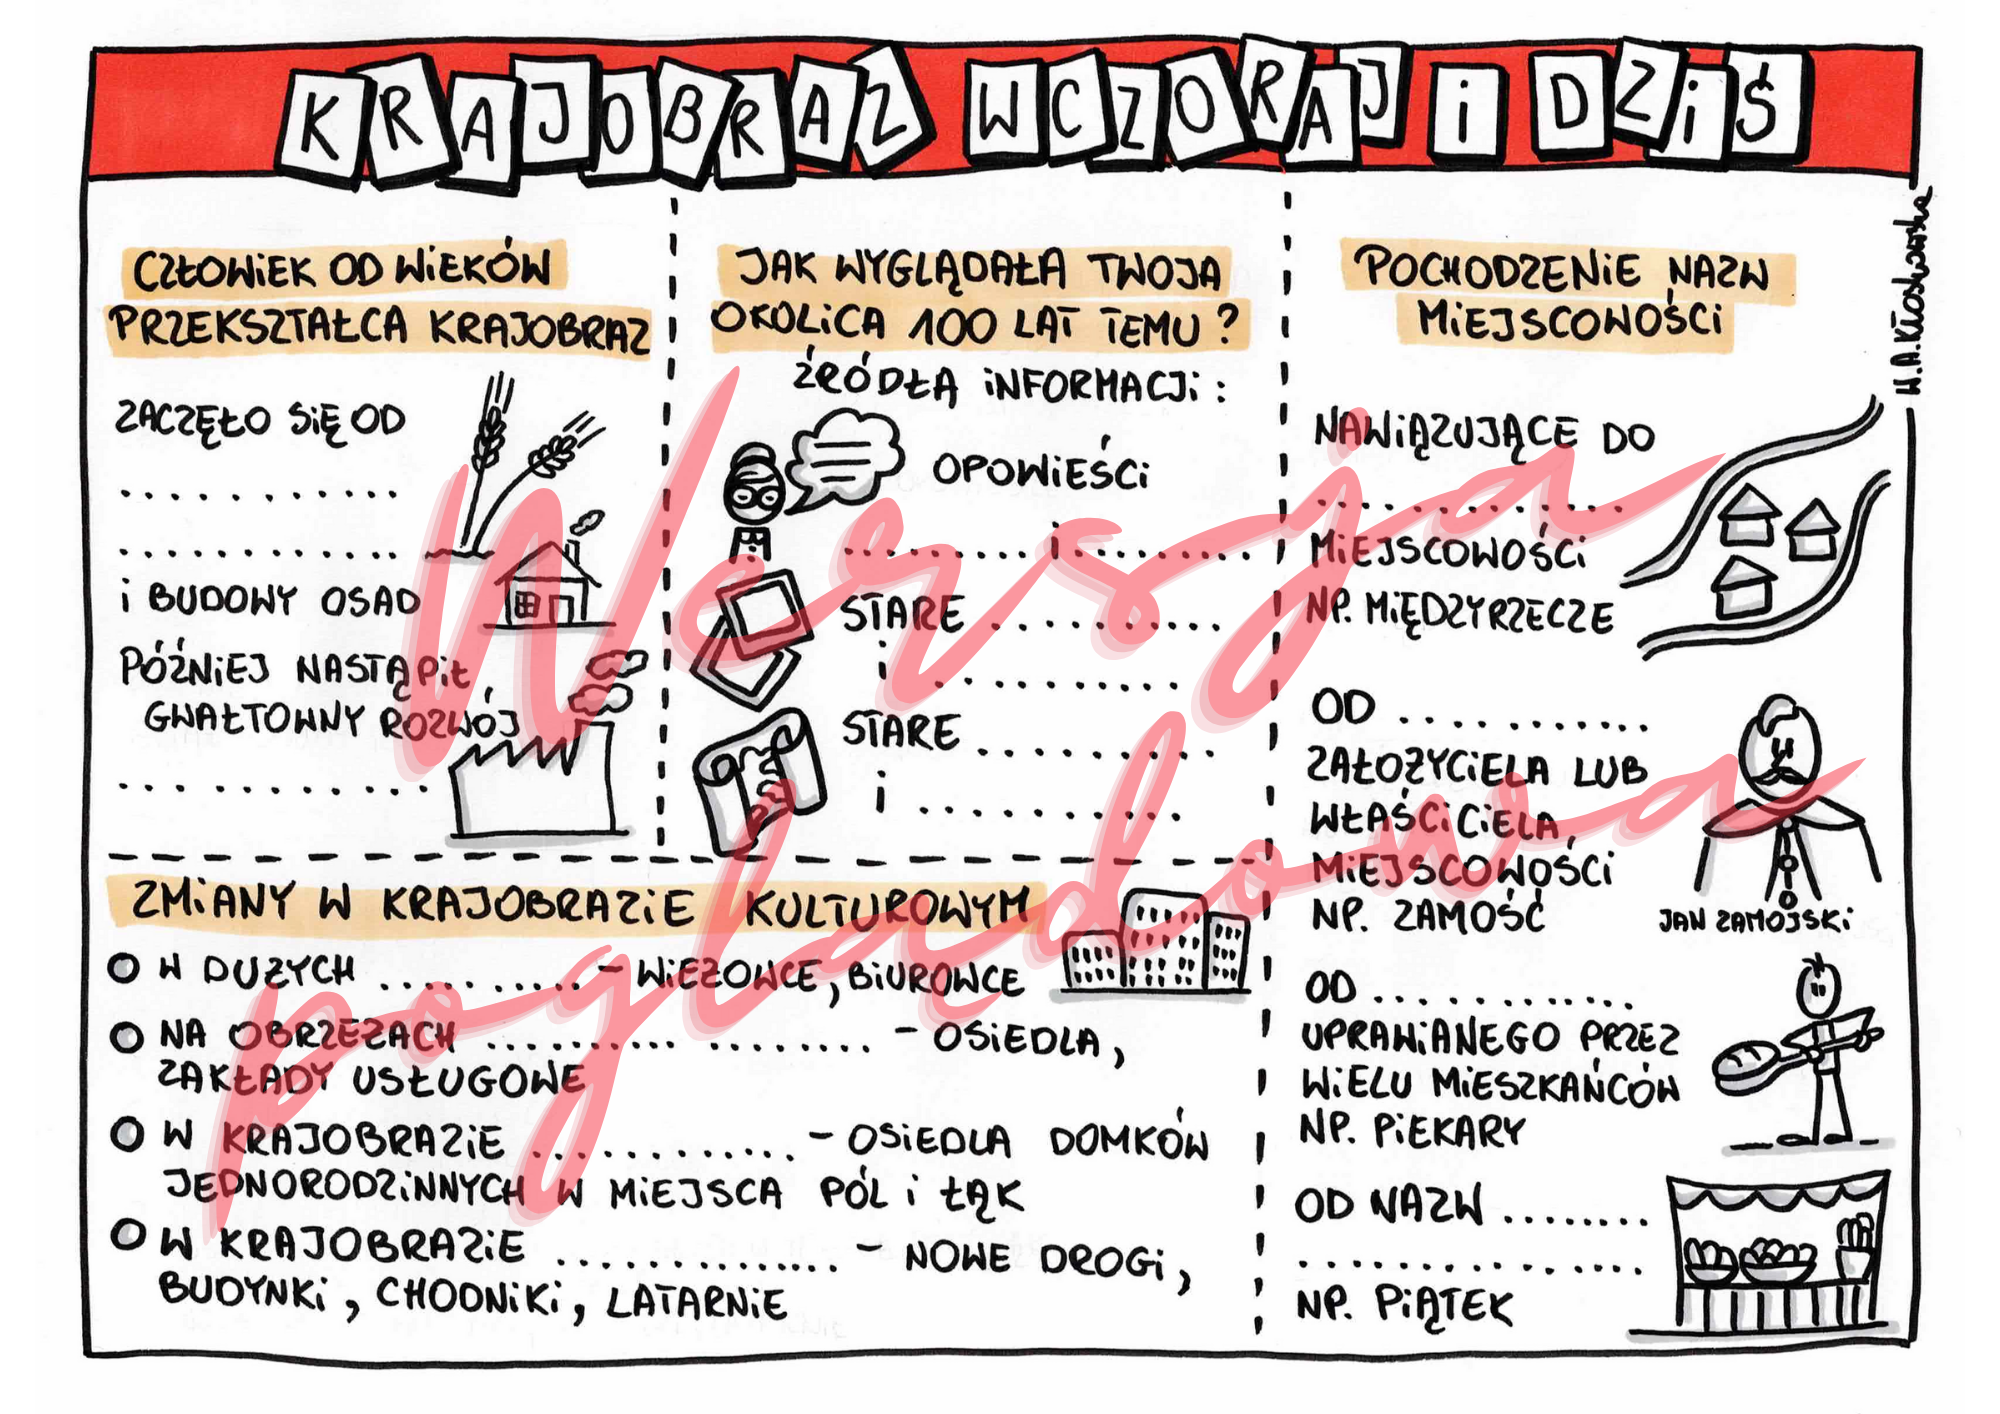 KRAJOBRAZ WCZORAJ i DZiŚ
W.A.Kłosowska
CZŁOWiEK OD WiEKÓW
PRZEKSZTAŁCA KRAJOBRAZ
ZACZĘŁO SiĘ OD
............
............
i BUDOWY OSAD
PÓŹNiEJ NASTĄPiŁ
GWAŁTOWNY ROZWÓJ
.............
JAK WYGLĄDAŁA TWOJA
OKOLiCA 100 LAT TEMU?
ŹRÓDŁA iNFORMACJi:
OPOWiEŚCi
......... i .........
STARE ...........
i ..........
STARE ...........
i ...........
ZMiANY W KRAJOBRAZiE KULTUROWYM
W DUŻYCH .......... – WiEŻOWCE, BiUROWCE
NA OBRZEŻACH .......... ........ – OSiEDLA,
ZAKŁADY USŁUGOWE
W KRAJOBRAZiE ............ – OSiEDLA DOMKÓW
JEDNORODZiNNYCH W MiEJSCA PÓL i ŁĄK
W KRAJOBRAZiE .............. – NOWE DROGi,
BUDYNKi, CHODNiKi, LATARNiE
POCHODZENiE NAZW
MiEJSCOWOŚCi
NAWiĄZUJĄCE DO
..............
MiEJSCOWOŚCi
NP. MiĘDZYRZECZE
OD ...........
ZAŁOŻYCiELA LUB
WŁAŚCiCiELA
MiEJSCOWOŚCi
NP. ZAMOŚĆ
JAN ZAMOJSKi
OD ............
UPRAWiANEGO PRZEZ
WiELU MiESZKAŃCÓW
NP. PiEKARY
OD NAZW ........
...............
NP. PiĄTEK
Wersja
poglądowa